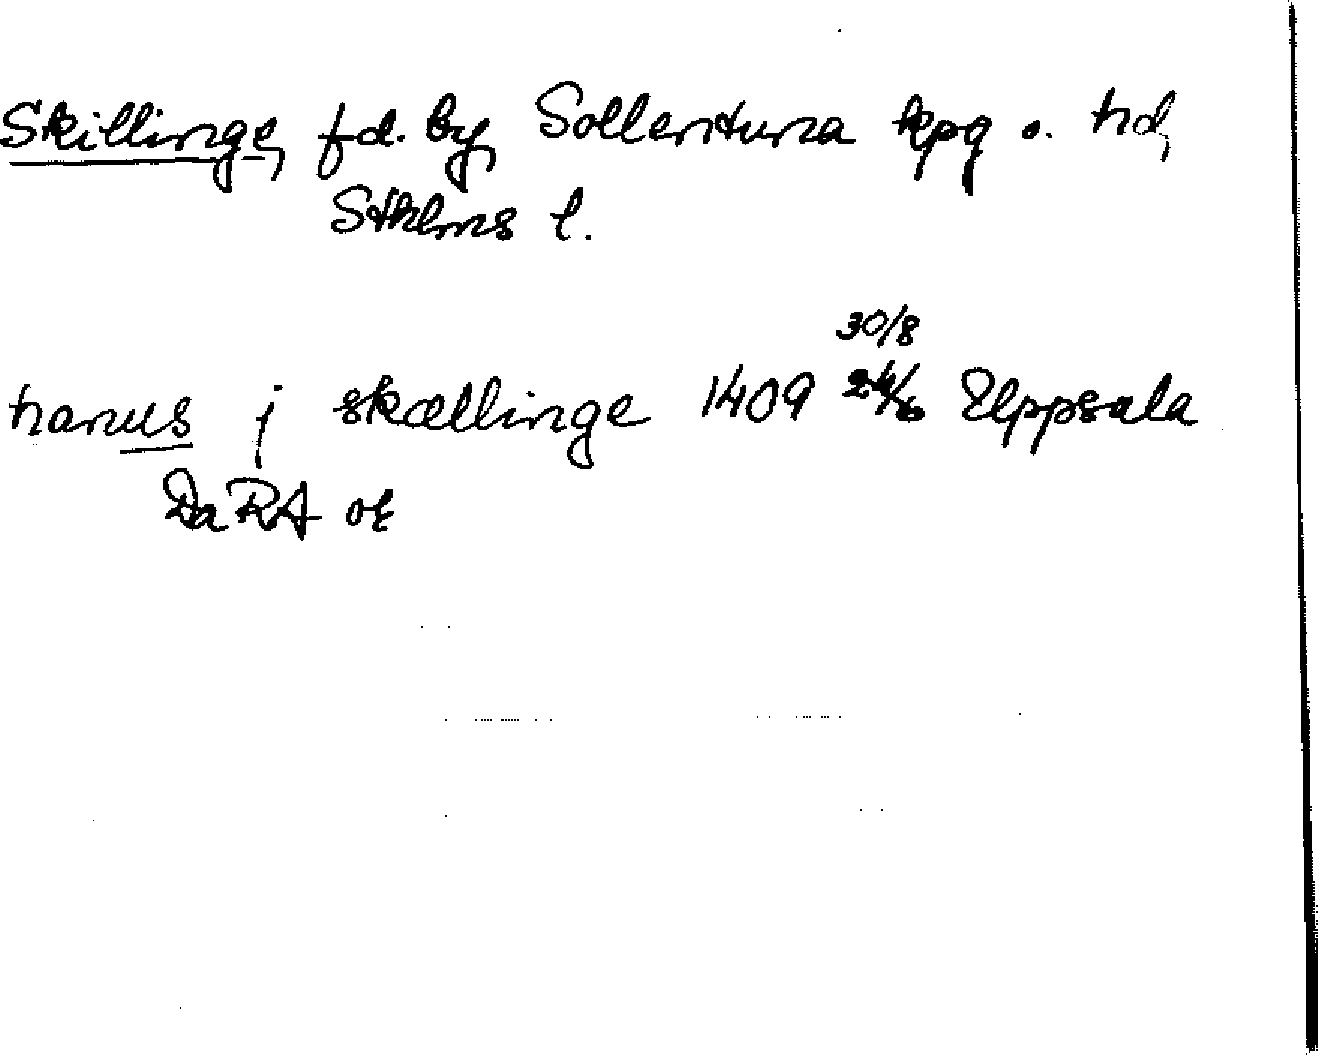 Skillinge, fd. by, Sollentuna kpg o. hd,
Stklms l.
30/8
hanus j skællinge 1409 24/6 Uppsala
DaRA or